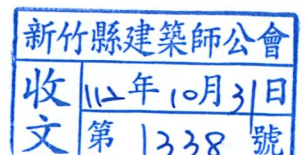 新竹縣建築師公會
收文 112年10月31日
第1338號